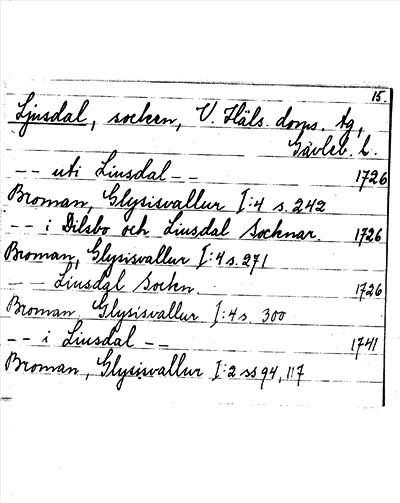 15.
Ljusdal, socken, V. Häls. doms. tg,
Gävleb. l.
-- uti Liusdal -- 1726
Broman, Glysisvallur I:4 s. 242
-- i Dilsbo och Liusdal Socknar. 1726
Broman, Glysisvallur I:4 s. 271
-- Liusdal Sockn. 1726
Broman, Glysisvallur I:4 s. 300
-- i Liusdal -- 1741
Broman, Glysisvallur I:2 ss 94, 117